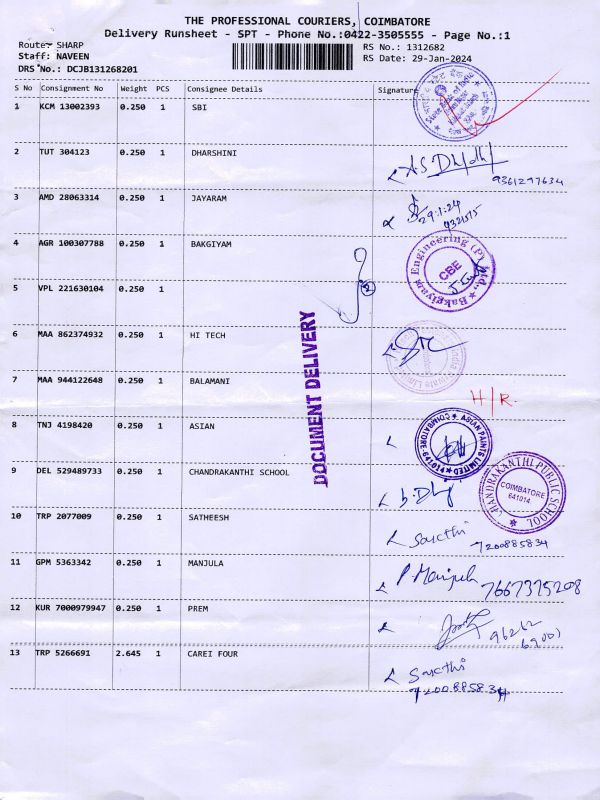 THE PROFESSIONAL COURIERS, COIMBATORE
Delivery Runsheet - SPT - Phone No.:0422-3505555 - Page No.:1
Route: SHARP
Staff: NAVEEN
DRS No.: DCJB131268201
RS No.: 1312682
RS Date: 29-Jan-2024
S No Consignment No Weight PCS Consignee Details Signature
1 KCM 13002393 0.250 1 SBI
2 TUT 304123 0.250 1 DHARSHINI
9361297634
3 AMD 28063314 0.250 1 JAYARAM
29.1.24
4 AGR 100307788 0.250 1 BAKGIYAM
Bakgiyam Engineering (P) Ltd., CBE
5 VPL 221630104 0.250 1
6 MAA 862374932 0.250 1 HI TECH
7 MAA 944122648 0.250 1 BALAMANI
H/R.
8 TNJ 4198420 0.250 1 ASIAN
ASIAN PAINTS LIMITED COIMBATORE
9 DEL 529489733 0.250 1 CHANDRAKANTHI SCHOOL
CHANDRAKANTHI PUBLIC SCHOOL COIMBATORE 641014
10 TRP 2077009 0.250 1 SATHEESH
7200885834
11 GPM 5363342 0.250 1 MANJULA
P Manjula 7667375208
12 KUR 7000979947 0.250 1 PREM
13 TRP 5266691 2.645 1 CAREI FOUR
7200885834
DOCUMENT DELIVERY